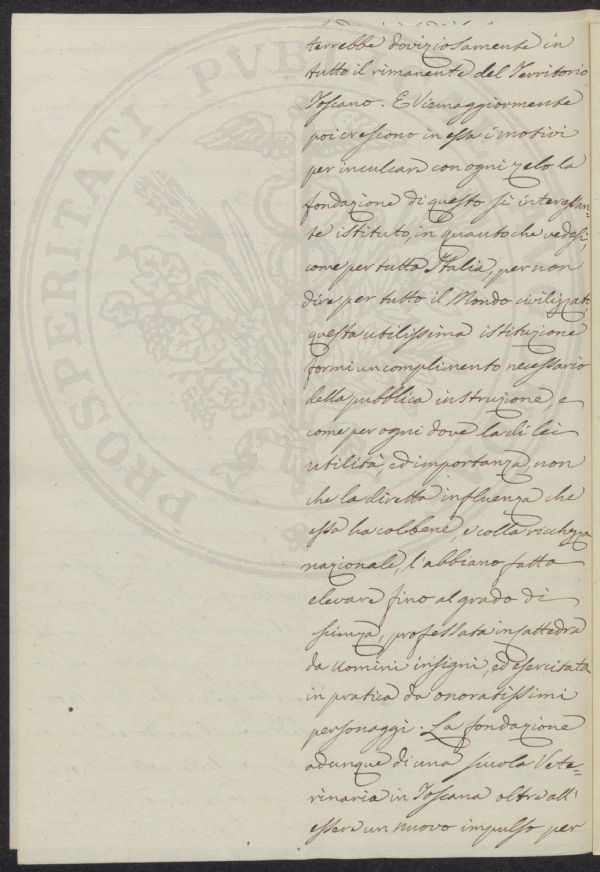 terrebbe doviziosamente in
tutto il rimanente del Territorio
Toscano. E Viemaggiormente
poi crescono in essa i motivi
per inculcare con ogni zelo la
fondazione di questo sì interessan=
te istituto, in quanto che vedesi,
come per tutta Italia, per non
dire per tutto il Mondo civilizzato
questa utilissima istituzione
formi un complimento necessario
della pubblica instruzione e
come per ogni dove la di lei
utilità, ed importanza, non
che la diretta influenza che
essa ha col bene, e colla ricchezza
nazionale, l'abbiano fatta
elevare fino al grado di
scienza, professata in Cattedra
da Uomini insigni, ed esercitata
in pratica da onoratissimi
personaggi. La fondazione
adunque di una scuola Vete=
rinaria in Toscana oltre all'
essere un nuovo impulso per
PROSPERITATI